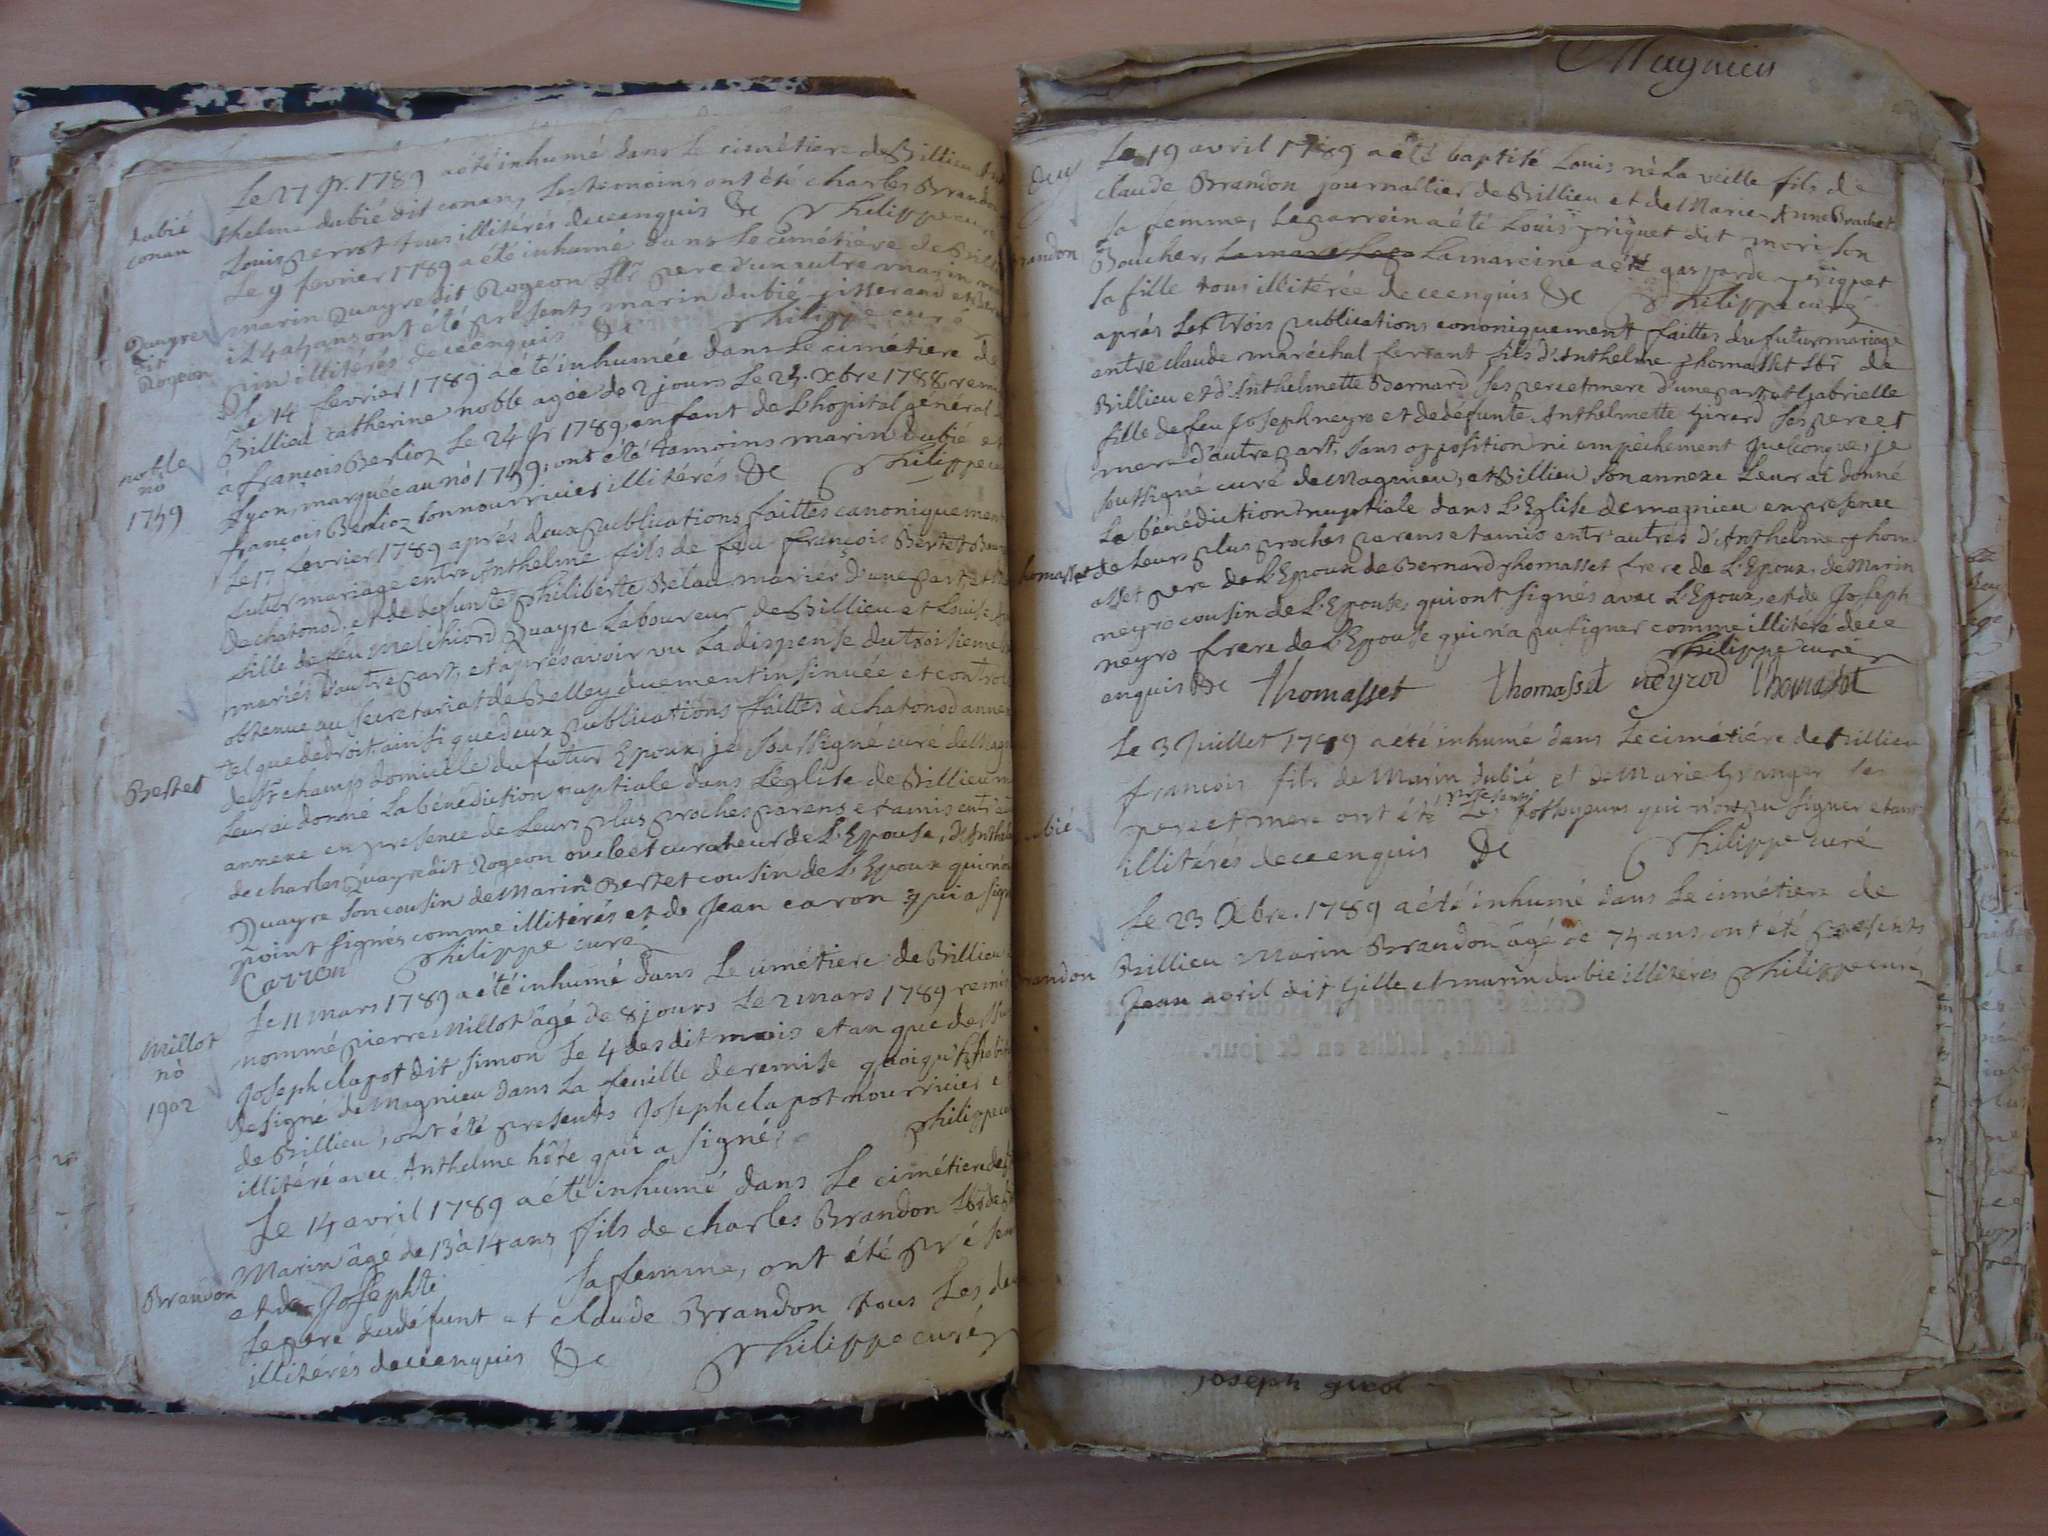 Le 27 Jr. 1789 a été inhumé dans Le cimétiere de Billieu
dubié
conan
thelme dubié dit conan, Les temoins ont été charles Brandon
Louis perrot tous illitérés de ce enquis &c Philippe curé
Le 9 fevrier 1789 a été inhumé dans Le cimétiére de
Quayre
dit
Rogeon
marin Quayre dit Rogeon Lbr pere d'un autre marin
ont été presents marin dubié
illitérés de ce enquis &c Philippe curé
Le 14 fevrier 1789 a été inhumée dans Le cimetiere de
noble
no
1759
Billieu catherine noble agée de 2 jours Le 25. Xbre 1788, remi
à françois Berlioz Le 24 Jr 1789, enfant de L'hopital général
Lyon, marquée au no 1759, ont été tamoins marin dubié et
françois Berlioz son nourricier illitérés &c Philippe
Le 17 fevrier 1789 aprés deux publications faittes canoniquement
futur mariage entre Anthelme fils de feu françois Bertet
de chatonod, et de defunte philiberte Bélau mariés d'une part et
fille de feu Melchiord Quayre Laboureur de Billieu et Louise
mariés d'autre part, et aprés avoir vu La dispense du troisieme
obtenue au secretariat de Belley duement insinuée et control
tel que de droit ainsi que deux publications faittes à chatonod annexe
Bertet
de St champ domicille du futur Epoux, je soussigné curé de Magn
Leur ai donné La bénédiction nuptiale dans L'église de Billieu
annexe en presence de Leurs plus proches parens et amis entr'
de charles Quayre dit Rogeon oncle et curateur de L'Epouse, d'Anthe
Quayre son cousin de Marin Bertet cousin de L'Epoux qui n'
point signés comme illitérés et de Jean caron qui a sign
Carron Philippe curé
Le 11 mars 1789 a été inhumé dans Le cimétiere de Billieu
Millot
no
1902
nommé pierre Millot âgé de 8 jours Le 2 mars 1789 remis
Joseph clapot dit simon Le 4 des dit mois et an que dessus
designé de Magnieu dans La feuille de remise quoiqu'
de Billieu, ont été presents Joseph clapot nourricier
illitéré avec Anthelme hôte qui a signé Philippe
Le 14 avril 1789 a été inhumé dans Le cimétiere de
Brandon
Marin âgé de 13 à 14 ans fils de charles Brandon Lbr de
et de Josephte sa femme, ont été présen
Le pere du défunt et claude Brandon tous Les deux
illitérés de ce enquis &c Philippe curé
Magnieu
Le 19 avril 1789 a été baptisé Louis né La veille fils de
claude Brandon journallier de Billieu et de Marie Anne Brochet
randon
sa femme, Le parrein a été Louis priquet dit mari son
Boucher, La mareine a été gasparde priquet
sa fille tous illitérée de ce enquis &c Philippe curé
aprés Les trois publications canoniquement faittes du futur mariage
entre claude maréchal ferrant fils d'Anthelme Thomasset Lbr de
Billieu et d'Anthelmette Bernard ses pere et mere d'une part et Gabrielle
fille de feu Joseph neyro et de defunte Anthelmette Girard ses pere et
mere d'autre part, sans opposition ni empêchement quelconque, je
soussigné curé de Magnieu, et Billieu son annexe Leur ai donné
La bénédiction nuptiale dans L'Eglise de magnieu en presence
homasset
de Leurs plus proches parens et amis entr'autres d'Anthelme Thom
asset pere de L'Epoux de Bernard Thomasset frere de L'Epoux de Marin
neyro cousin de L'Epouse, qui ont signés avec L'Epoux, et de Joseph
neyro frere de L'Epouse qui n'a pu signer comme illitéré de ce
enquis &c Philippe curé
thomasset thomasset neyrod thomasset
Le 3 Juillet 1789 a été inhumé dans Le cimétiére de Billieu
françois fils de Marin dubié et de Marie Granger ses
bié
pere et mere ont été presents Les fossoyeurs qui n'ont pu signer etant
illitérés de ce enquis &c Philippe curé
Le 23 Xbre. 1789 a été inhumé dans Le cimétiere de
randon
Billieu Marin Brandon âgé de 74 ans ont été presents
Jean avril dit Gille et marin dubie illitérés Philippe curé
joseph